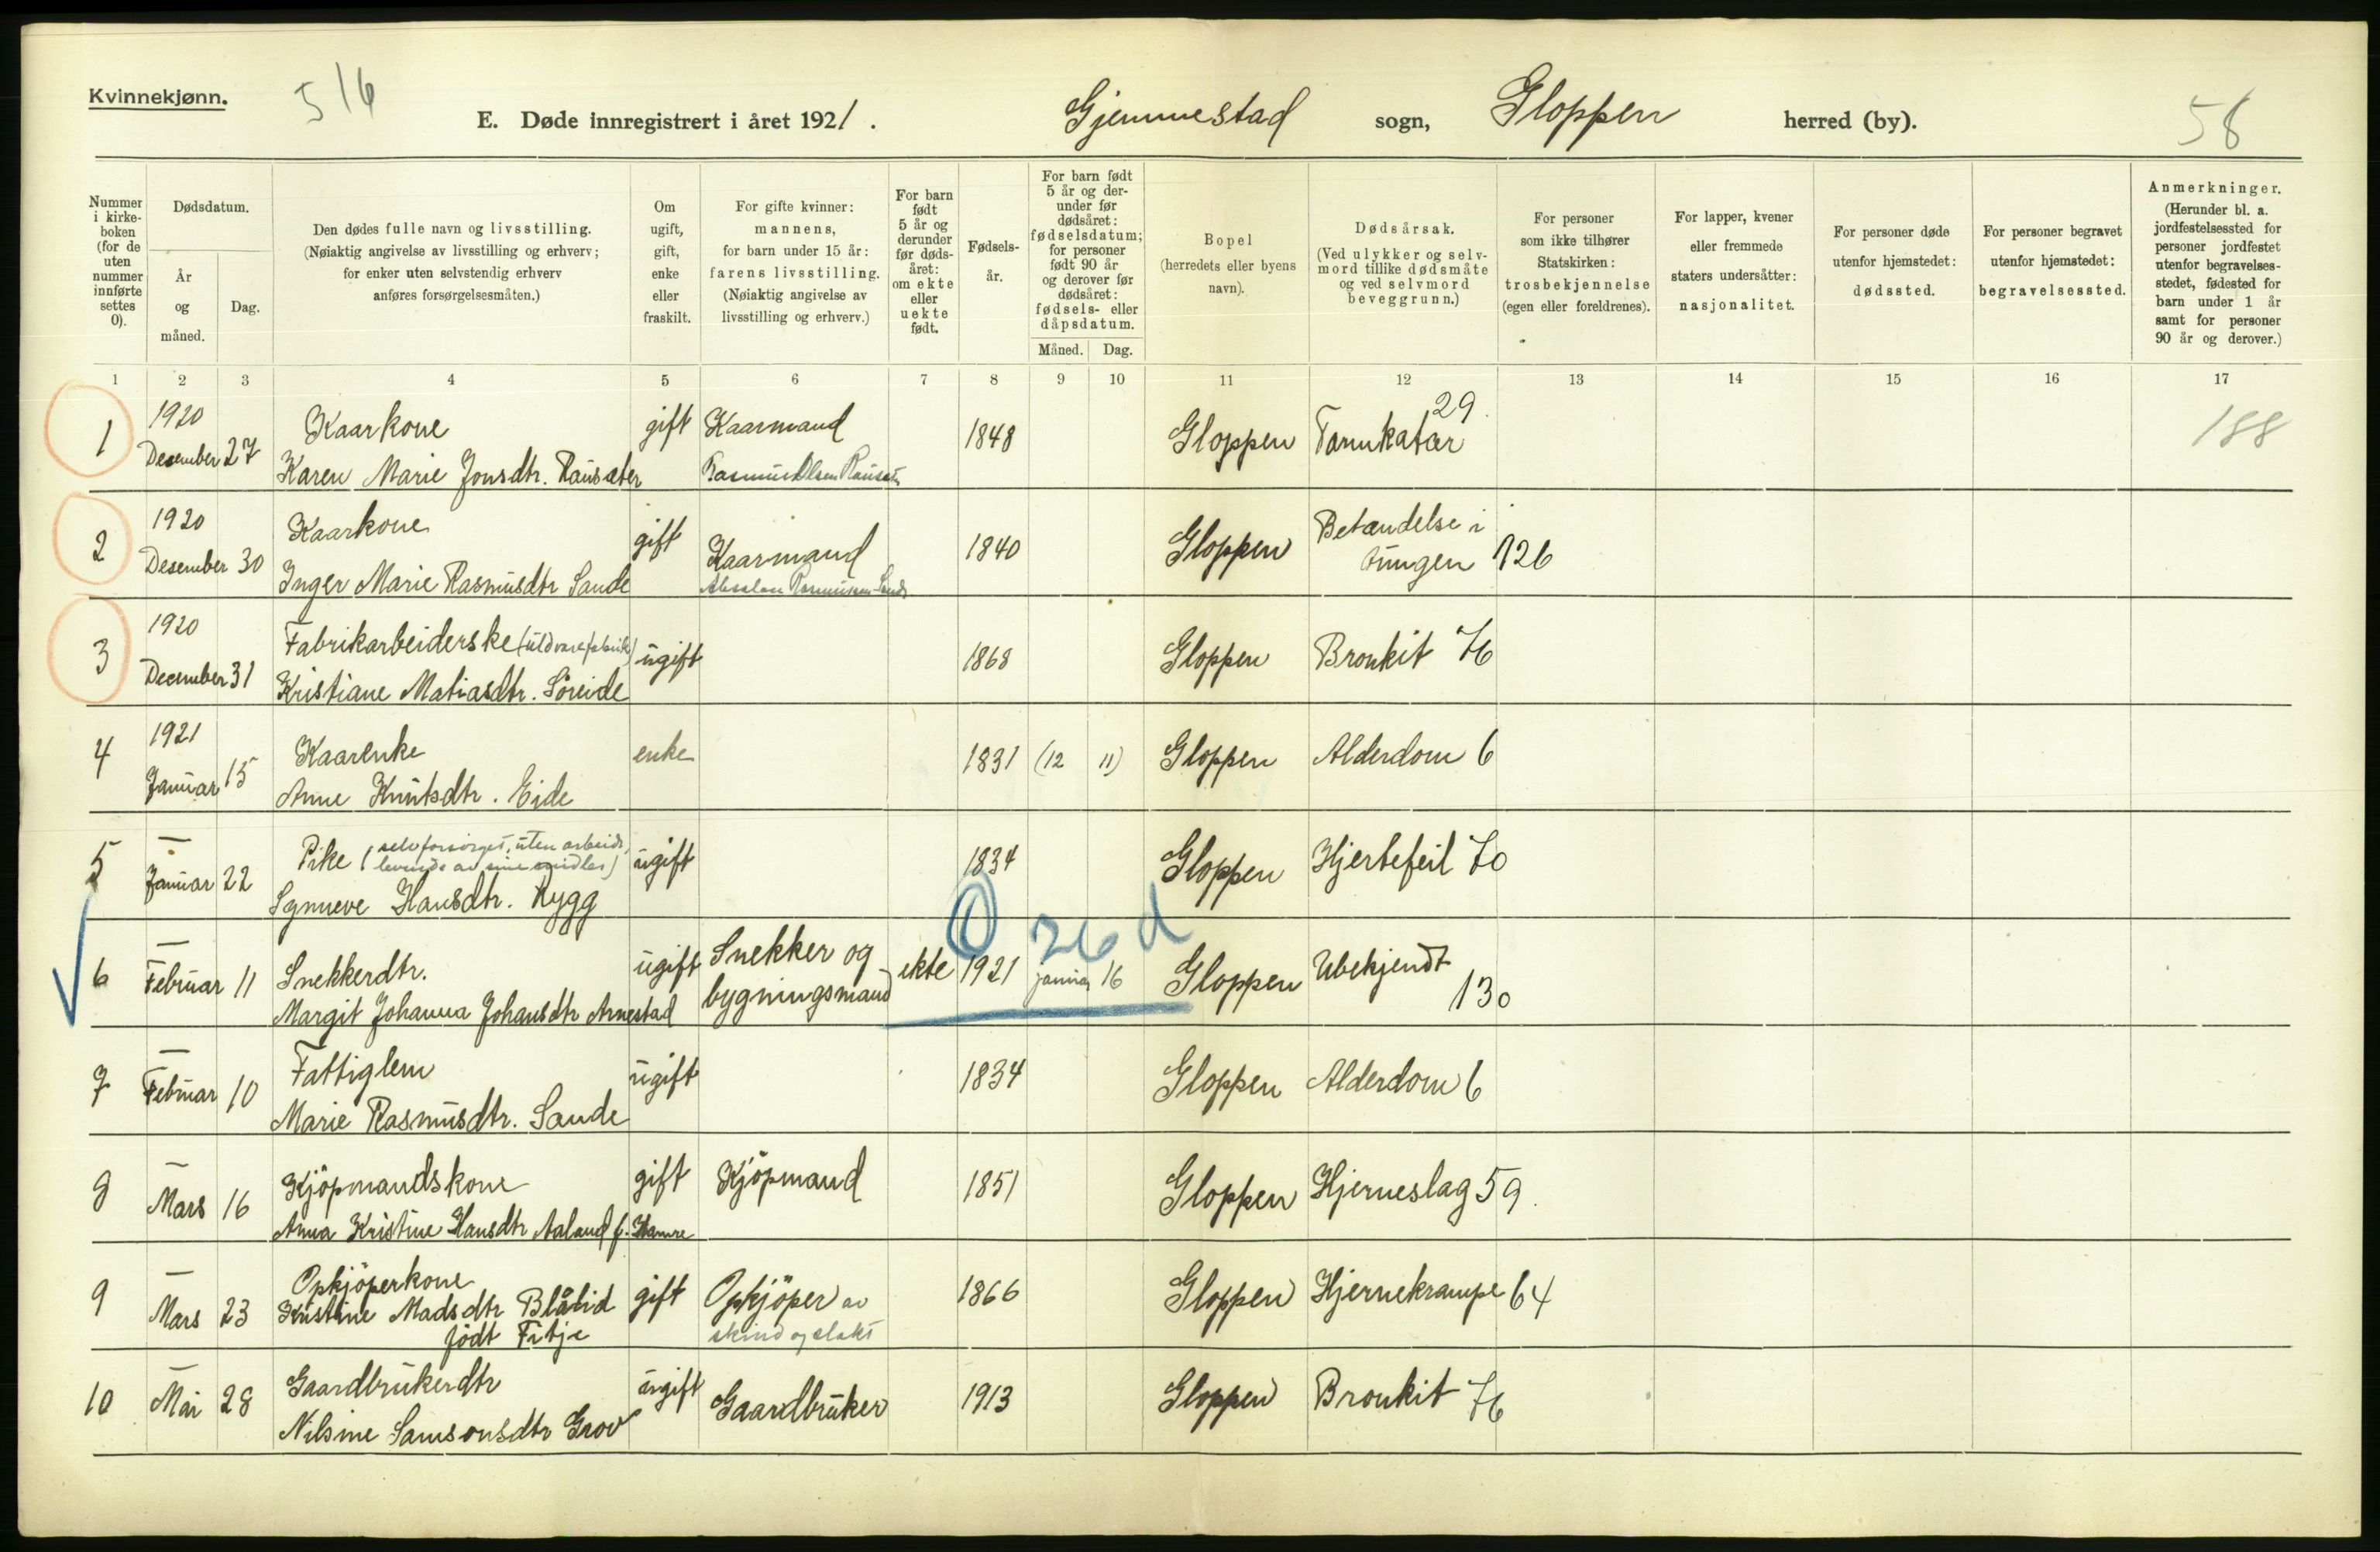 Kvinnekjønn.
516
E. Døde innregistrert i året 1921.
Gjemmestad sogn, Gloppen herred (by).
58
Nummer i kirke-boken (for de uten nummer innførte settes 0).
Dødsdatum.
År og måned.
Dag.
Den dødes fulle navn og livsstilling.
(Nøiaktig angivelse av livsstilling og erhverv;
for enker uten selvstendig erhverv
anføres forsørgelsesmåten.)
Om ugift, gift, enke eller fraskilt.
For gifte kvinner:
mannens,
for barn under 15 år:
farens livsstilling.
(Nøiaktig angivelse av
livsstilling og erhverv.)
For barn født 5 år og derunder før døds-året: om ekte eller uekte født.
Fødsels-år.
For barn født 5 år og der-under før dødsåret: fødselsdatum; for personer født 90 år og derover før dødsåret: fødsels- eller dåpsdatum.
Måned. Dag.
Bopel
(herredets eller byens
navn).
Dødsårsak.
(Ved ulykker og selv-
mord tillike dødsmåte
og ved selvmord
beveggrunn.)
For personer
som ikke tilhører
Statskirken:
trosbekjennelse
(egen eller foreldrenes).
For lapper, kvener
eller fremmede
staters undersåtter:
nasjonalitet.
For personer døde
utenfor hjemstedet:
dødssted.
For personer begravet
utenfor hjemstedet:
begravelsessted.
Anmerkninger.
(Herunder bl. a.
jordfestelsessted for
personer jordfestet
utenfor begravelses-
stedet, fødested for
barn under 1 år
samt for personer
90 år og derover.)
1 2 3 4 5 6 7 8 9 10 11 12 13 14 15 16 17
1 1920 Kaarkone gift Kaarmand 1848 Gloppen Tarmkatar 29. 188
Desember 27 Karen Marie Jonsdtr. Rausæter Rasmus Olsen Rausæter
2 1920 Kaarkone gift Kaarmand 1840 Gloppen Betændelse i
Desember 30 Inger Marie Rasmusdtr Sande Absalon Rasmussen Sande tungen 126
3 1920 Fabrikarbeiderske (uldvarefabrik) ugift 1868 Gloppen Bronkit 76
December 31 Kristiane Matiasdtr. Söreide
4 1921 Kaarenke enke 1831 (12 11) Gloppen Alderdom 6
Januar 15 Anne Knutsdtr. Eide
5 — Pike (selvforsörget, uten arbeide, ugift 1834 Gloppen Hjertefeil 70
levende av sine midler)
Januar 22 Synneve Hansdtr. Rygg
1 26 d
6 — Snekkerdtr. ugift Snekker og ekte 1921 januar 16 Gloppen Ubekjendt
Februar 11 Margit Johanna Johansdtr Arnestad bygningsmand 130
7 — Fattiglem ugift 1834 Gloppen Alderdom 6
Februar 10 Marie Rasmusdtr. Sande
8 — Kjöpmandskone gift Kjöpmand 1851 Gloppen Hjerneslag 59.
Mars 16 Anna Kristine Hansdtr Aaland f. Hamre
9 — Opkjöperkone gift Opkjöper av 1866 Gloppen Hjernekrampe 64
Mars 23 Kristine Madsdtr Blålid skind og slakt
födt Fitje
10 — Gaardbrukerdtr ugift Gaardbruker 1913 Gloppen Bronkit 76
Mai 28 Nilsine Samsonsdtr Grov